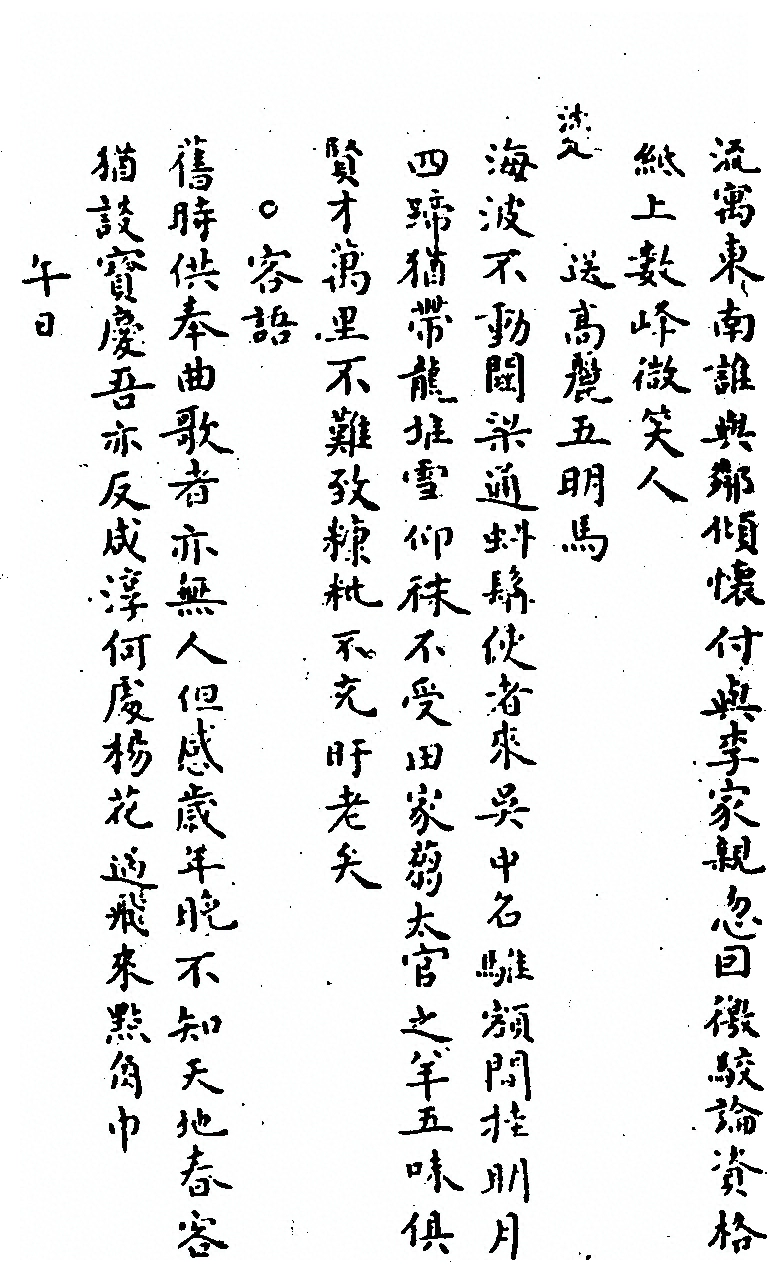 流寓東南誰與鄰傾懷付與李家親忽因徵駮論資格
紙上數峰微笑人
送高麗五明馬
海波不動閩梁通蚪髯使者來吳中名騅額間挂明月
四蹄猶帶龍堆雪仰秣不受田家蒭太官之羊五味俱
賢才萬里不難致糠籺不充旴老矣
○客語
舊時供奉曲歌者亦無人但感歲年晚不知天地春客
猶談寶慶吾亦反咸淳何處楊花過飛來點角巾
午日